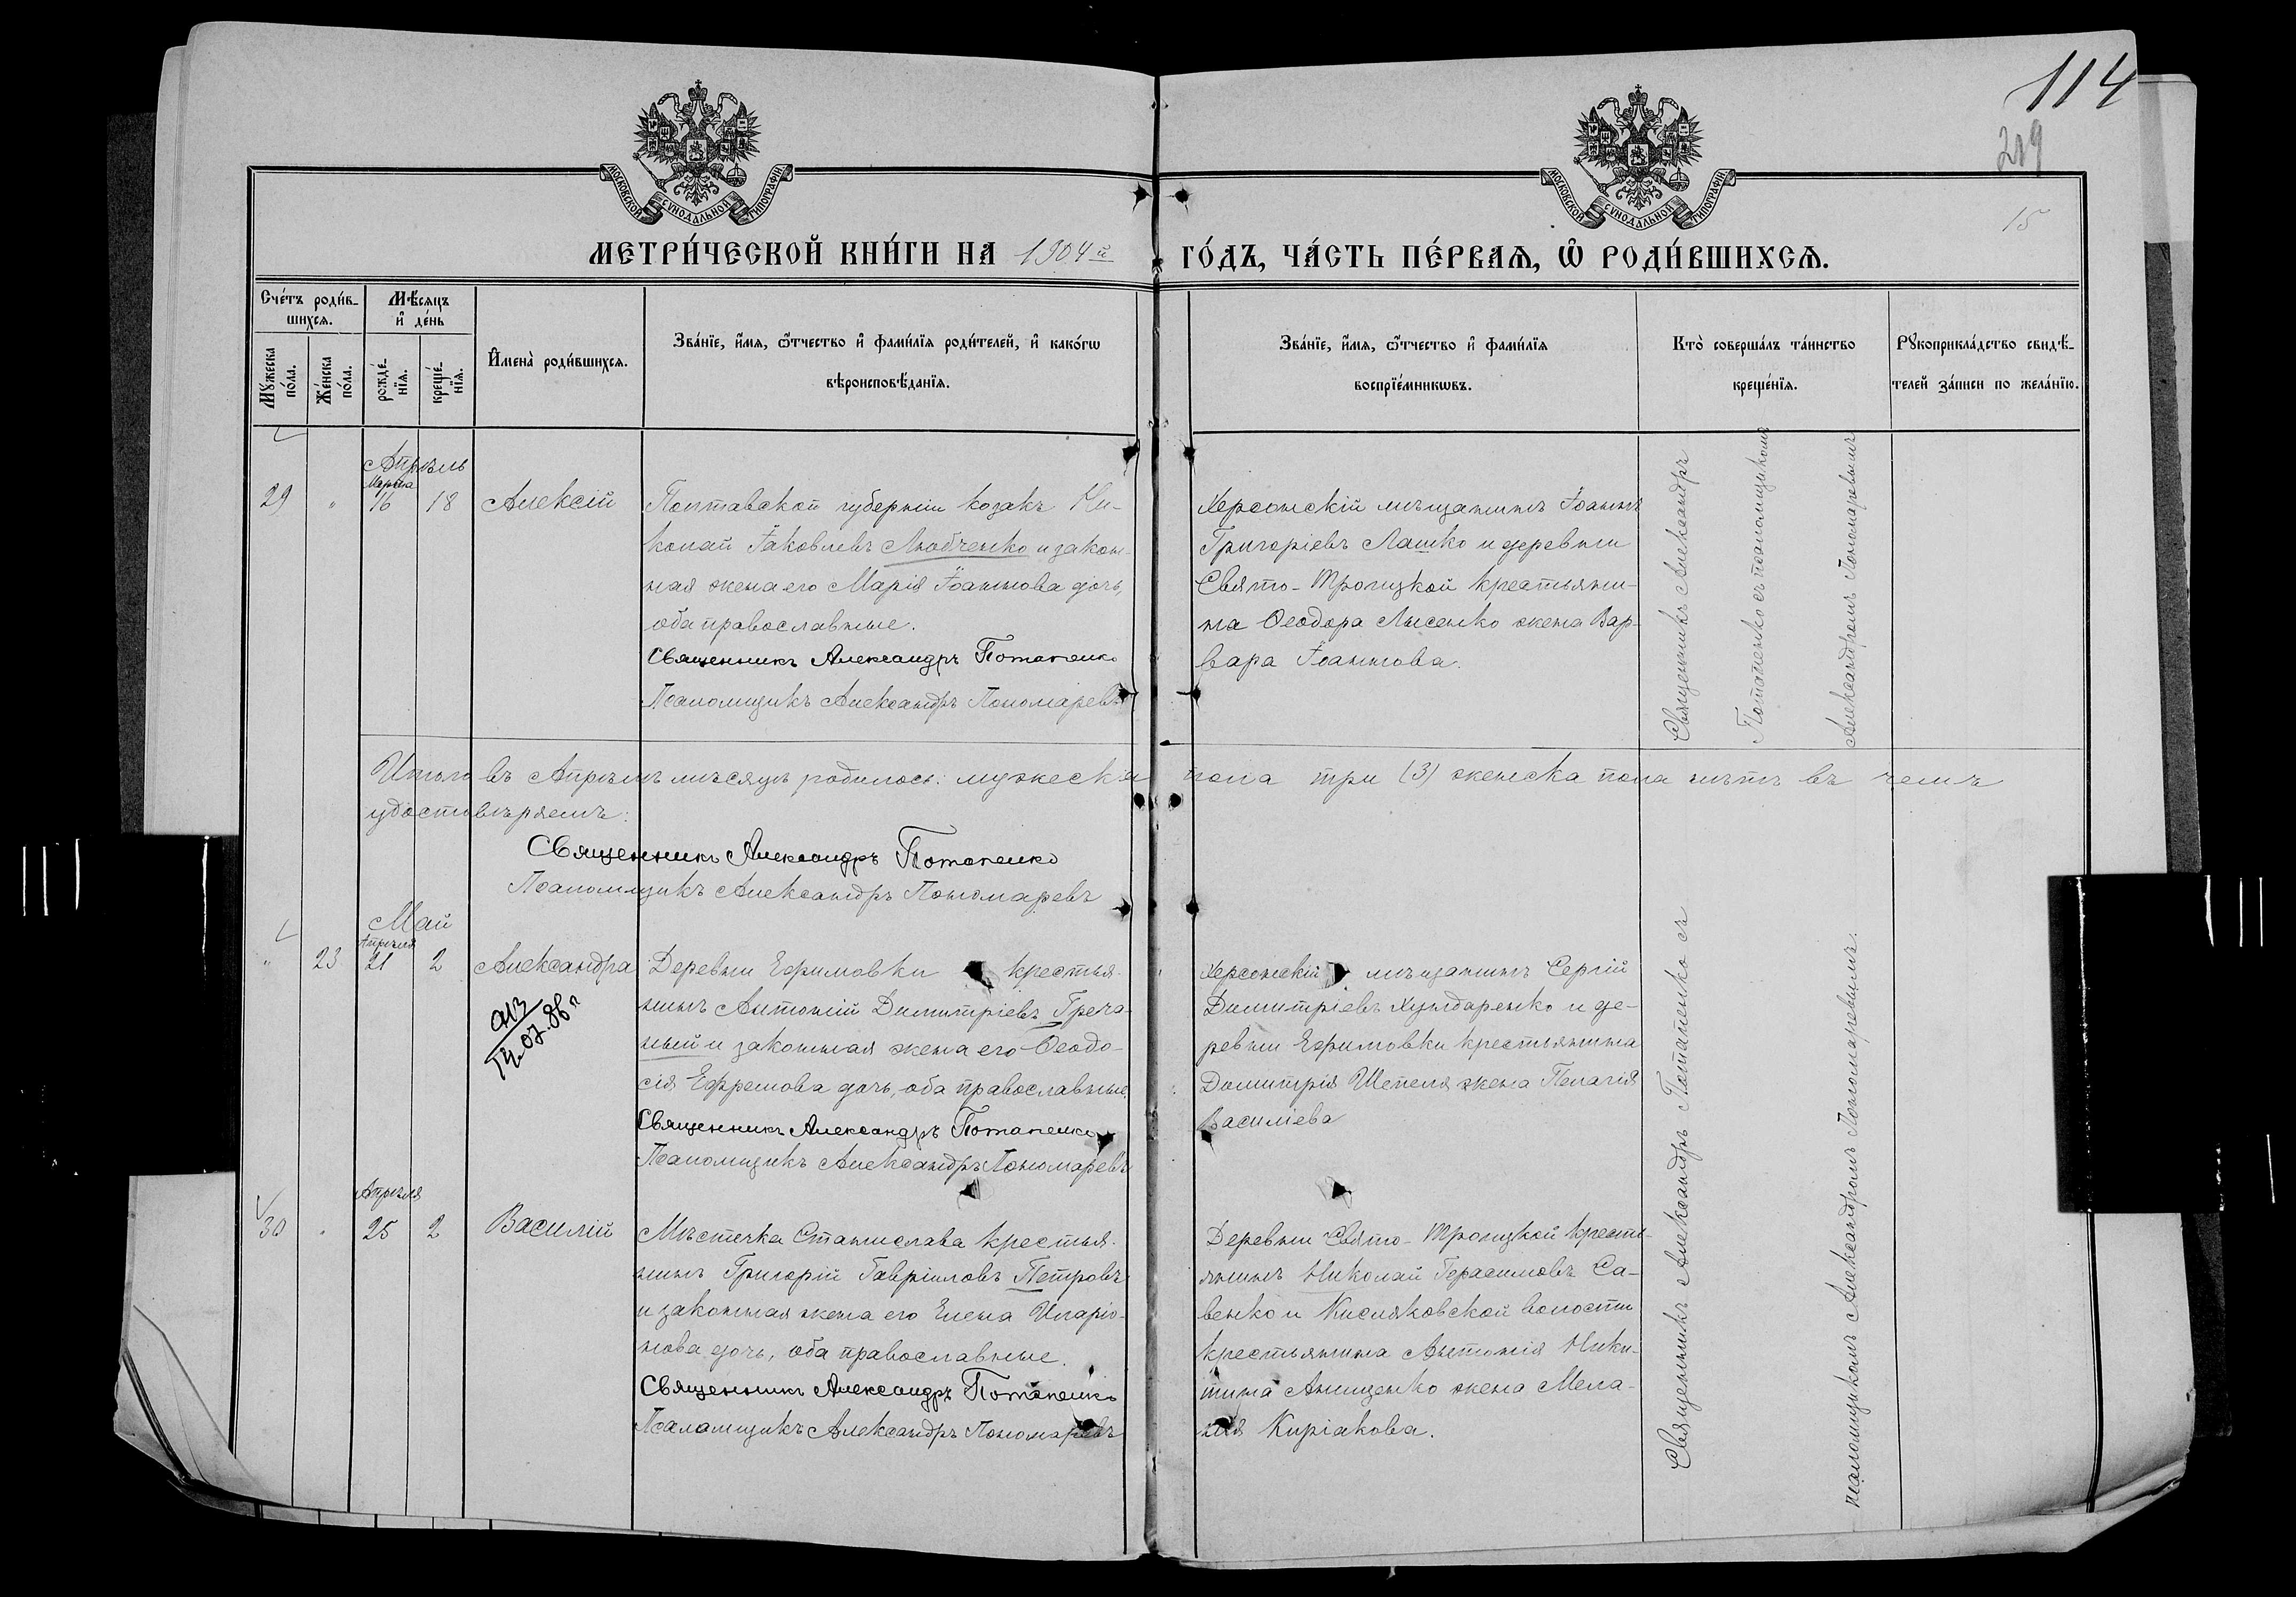 114
219
15
МОСКОВСКОЙ СѴНОДАЛЬНОЙ ТИПОГРАФІИ
МОСКОВСКОЙ СѴНОДАЛЬНОЙ ТИПОГРАФІИ
МЕТРИ́ЧЕСКОЙ КНИ́ГИ НА 1904й ГО́ДЪ, ЧА́СТЬ ПЕ́РВАѦ, Ѡ҆ РОДИ́ВШИХСѦ.
Сче́тъ роди́в-
шихсѧ.
Мꙋ́жеска по́ла.
Же́нска по́ла.
Мѣ́сѧцъ
и҆ де́нь
рожде́-
нїѧ.
креще́-
нїѧ.
И҆мена̀ роди́вшихсѧ.
Зва́нїе, и҆́мѧ, ѻ҆́тчество и҆ фами́лїѧ роди́телей, и҆ како́гѡ
вѣроисповѣ́данїѧ.
Зва́нїе, и҆́мѧ, ѻ҆́тчество и҆ фами́лїѧ
воспрїе́мникѡвъ.
Кто̀ соверша́лъ та́инство
креще́нїѧ.
Рꙋкоприкла́дство свидѣ́-
телей за́писи по жела́нїю.
Апрѣль
Марта
29 " 16 18 Алексій
Полтавской губерніи козакъ Ни-
колай Іаковлевъ Любченко и закон-
ная жена его Марія Іоаннова дочь,
оба православные.
Священникъ Александръ Потапенко
Псаломщикъ Александръ Пономаревъ
Херсонскій мѣщанинъ Іоаннъ
Григоріевъ Лашко и деревни
Свято-Троицкой крестьяни-
на Ѳеодора Лысенко жена Вар-
вара Іоаннова.
Священникъ Александръ
Потапенко съ псаломщикомъ
Александромъ Пономаревымъ
Итого въ Апрѣлѣ мѣсяцѣ родилось: мужеска пола три (3) женска пола нѣтъ въ чемъ
удостовѣряемъ:
Священникъ Александръ Потапенко
Псаломщикъ Александръ Пономаревъ
Май
Апрѣля
" 23 21 2 Александра
14.07.86 г
Деревни Ефимовки крестья-
нинъ Антоній Димитріевъ Греча-
ный и законная жена его Ѳеодо-
сія Ефремова дочь, оба православные.
Священникъ Александръ Потапенко
Псаломщикъ Александръ Пономаревъ
Херсонскій мѣщанинъ Сергій
Димитріевъ Хундаренко и де-
ревни Ефимовки крестьянина
Димитрія Шепеля жена Пелагія
Василіева
Апрѣля
30 " 25 2 Василій
Мѣстечка Станислава крестья-
нинъ Григорій Гавріиловъ Петровъ
и законная жена его Елена Иларіо-
нова дочь, оба православные.
Священникъ Александръ Потапенко
Псаломщикъ Александръ Пономаревъ
Деревни Свято-Троицкой кресть-
янинъ Николай Герасимовъ Са-
венко и Кисляковской волости
крестьянина Антонія Ники-
тина Анищенко жена Мела-
нія Киріакова.
Священникъ Александръ Потапенко съ
псаломщикомъ Александромъ Пономаревымъ.